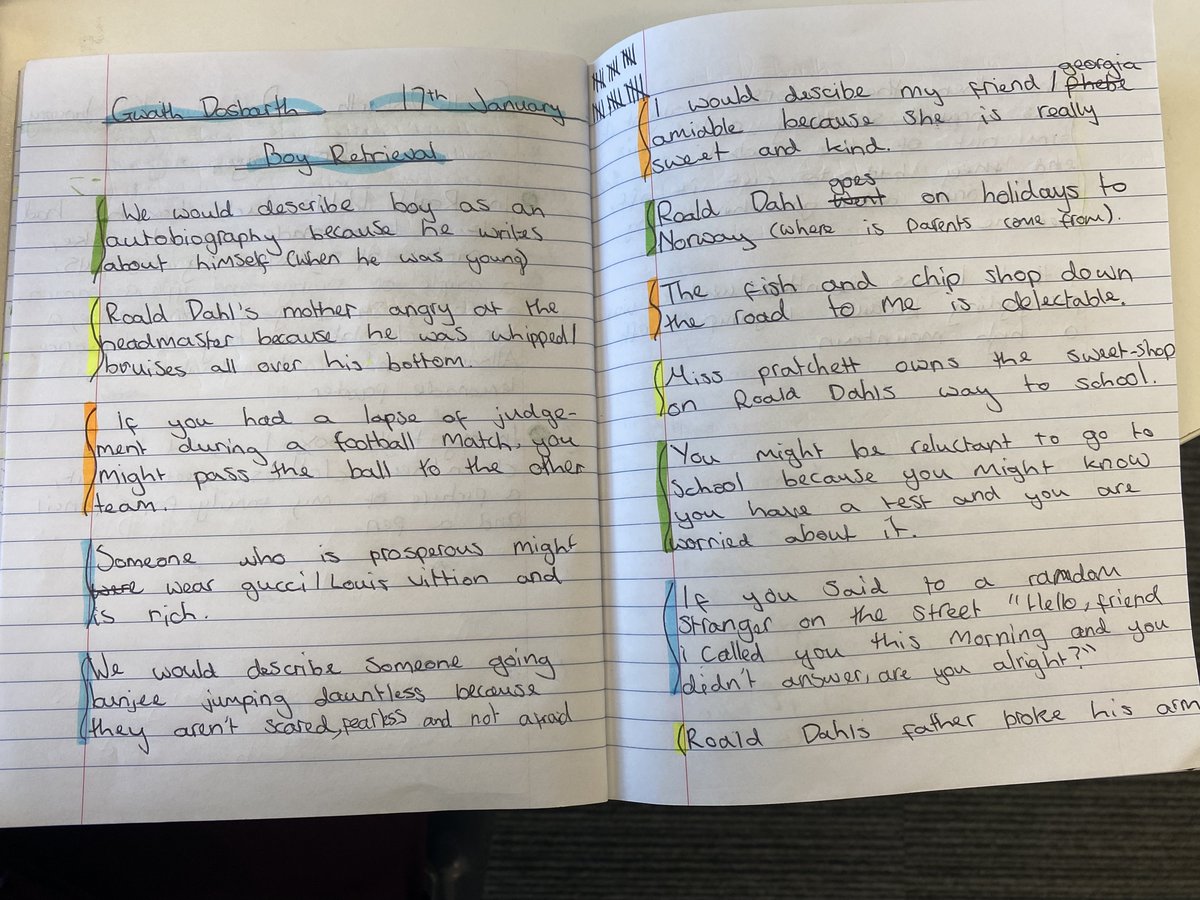 Gwaith Dosbarth 17th January
Boy Retrieval
We would describe boy as an
autobiography because he writes
about himself (when he was young)
Roald Dahl's mother angry at the
headmaster because he was whipped/
bruises all over his bottom.
If you had a lapse of judge-
ment during a football match, you
might pass the ball to the other
team.
Someone who is prosperous might
wore wear gucci/Louis vittion and
is rich.
We would describe someone going
bunjee jumping dauntless because
they aren't scared, fearless and not afraid
georgia
I would descibe my friend / Phebe
amiable because she is really
sweet and kind.
goes
Roald Dahl went on holidays to
Norway (where is parents come from).
The fish and chip shop down
the road to me is delectable.
Miss pratchett owns the sweet-shop
on Roald Dahls way to school.
You might be reluctant to go to
school because you might know
you have a test and you are
worried about it.
If you said to a ramdom
stranger on the street "Hello, friend
i called you this morning and you
didn't answer, are you alright?"
Roald Dahls father broke his arm